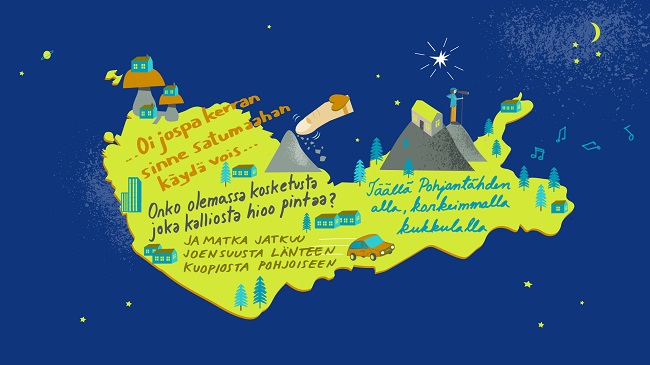 ...Oi jospa kerran
sinne satumaahan
käydä vois...
Onko olemassa kosketusta
joka kalliosta hioo pintaa?
JA MATKA JATKUU
JOENSUUSTA LÄNTEEN
KUOPIOSTA POHJOISEEN
Täällä Pohjantähden
alla, korkeimmalla
kukkulalla